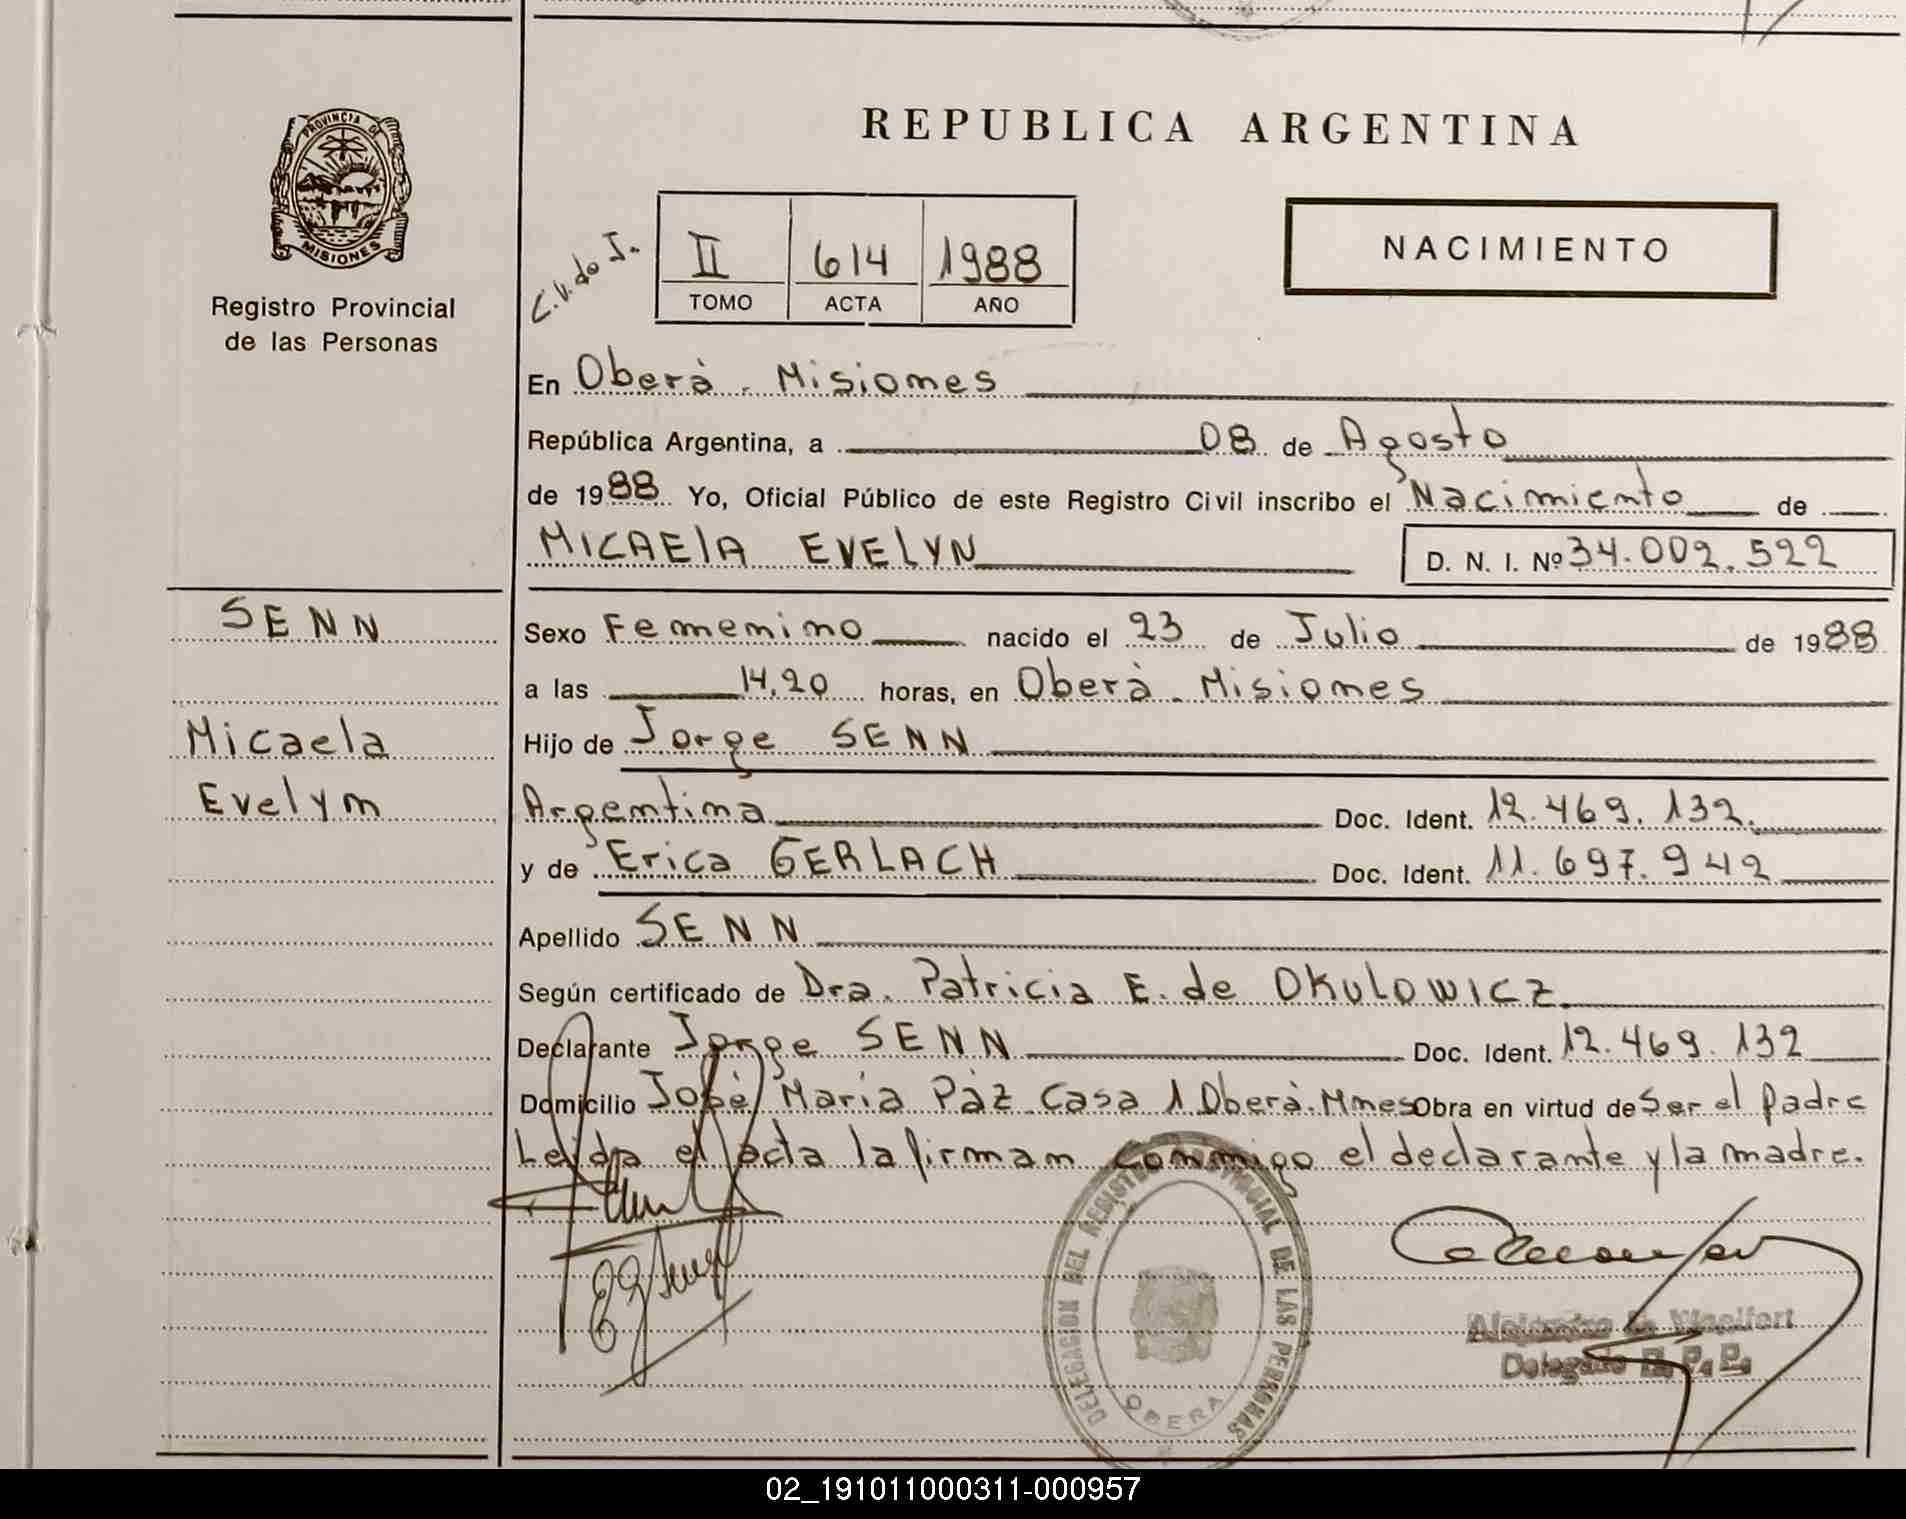 PROVINCIA DE
MISIONES
Registro Provincial
de las Personas
REPUBLICA ARGENTINA
C.V. do J.
II 614 1988
TOMO ACTA AÑO
NACIMIENTO
En Oberà - Misiones
República Argentina, a 08 de Agosto
de 1988 Yo, Oficial Público de este Registro Civil inscribo el Nacimiento de
MICAElA EVElYN D. N. I. Nº 34.002.522
SENN
Sexo Femenino nacido el 23 de Julio de 1988
a las 14,20 horas, en Oberà - Misiones
Micaela
Hijo de Jorge SENN
Evelyn
Argentina Doc. Ident. 12.469.132.
y de Erica GERLACH Doc. Ident. 11.697.942
Apellido SENN
Según certificado de Dra. Patricia E. de OKULOWICZ
Declarante Jorge SENN Doc. Ident. 12.469.132
Domicilio Josè Maria Pàz Casa 1 Oberà. Mnes Obra en virtud de Ser el Padre
Leìda el acta la firman conmigo el declarante y la madre.
DELEGACION DEL REGISTRO PROVINCIAL DE LAS PERSONAS
OBERA
Delegado R. P. P.
02_191011000311-000957